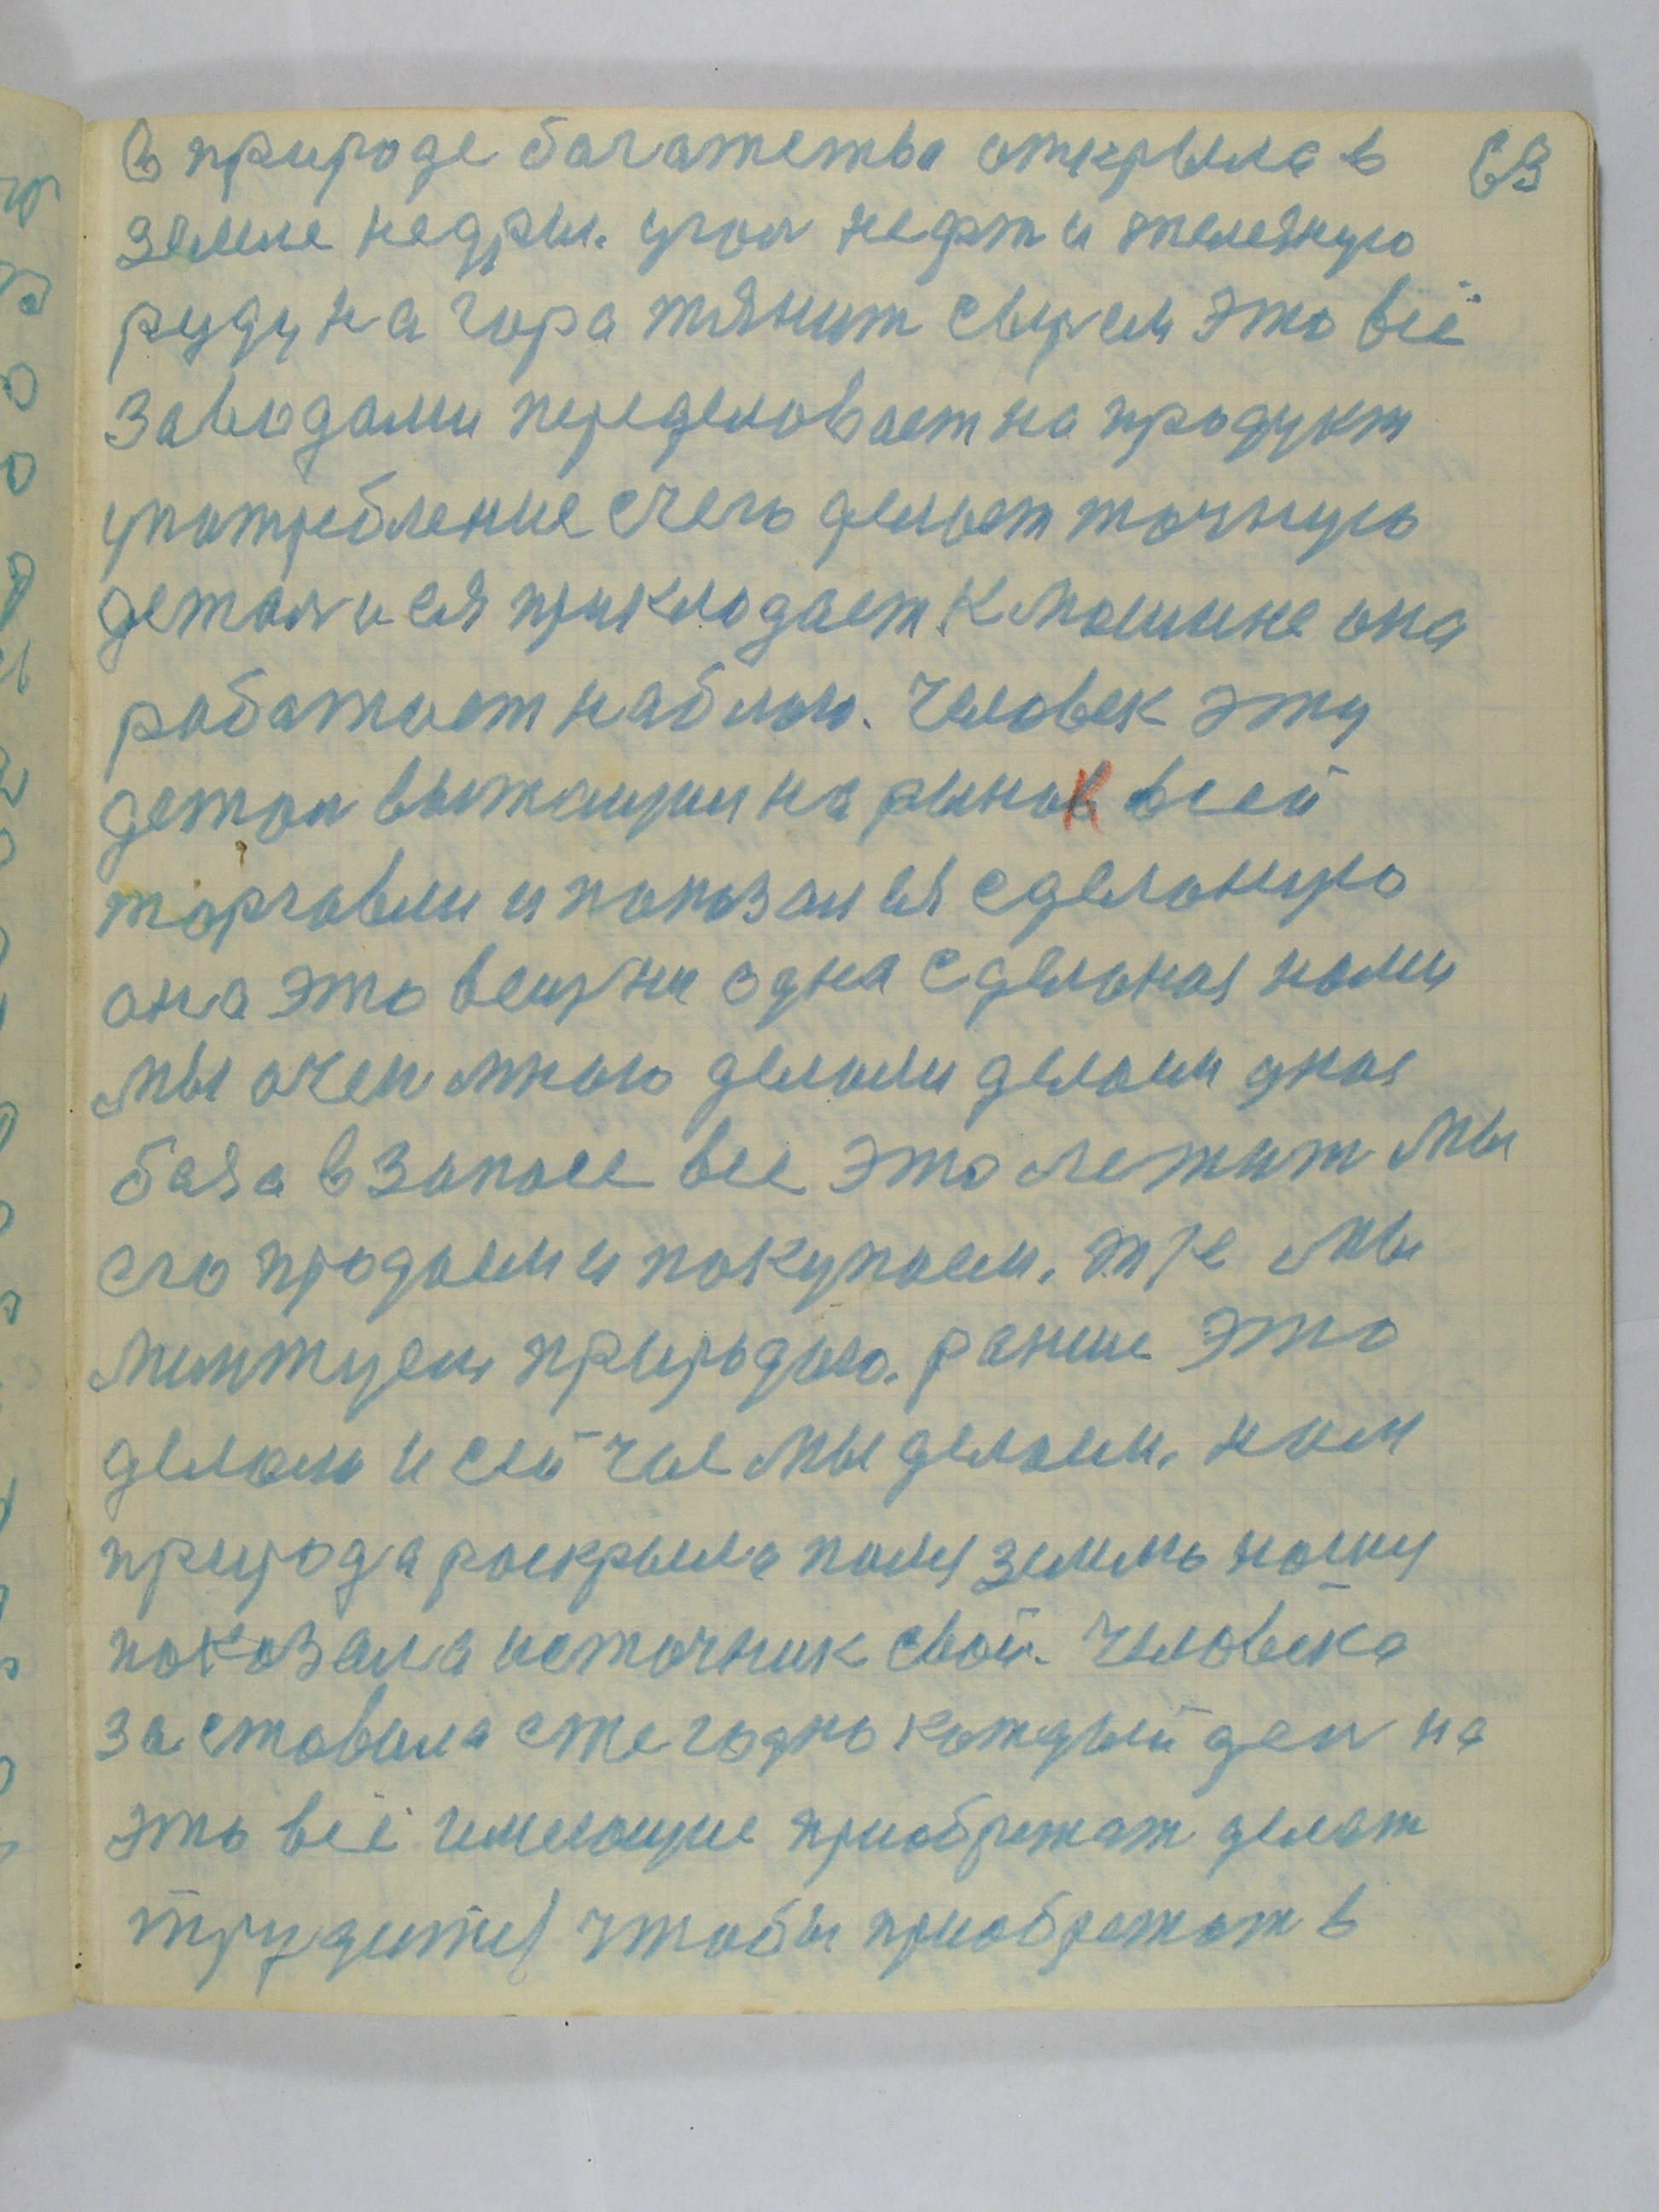 в природе багатства открыла в 63
земле недры. угол нефт и желязную
руду на гора тянит сырем это всё
заводами переделовает на продукт
употребление счего делает точную
детал и ея прикладает к машине она
работает на благо. Человек эту
детал вытащил на рынок всей
торговли и показал ея сделоную
она это вещ ни одна сделоная нами
мы очен много делали делаем дная
база в запасе все это лежит мы
его продаем и покупаем. тже мы
природаю. ранше это
делали и сейчас мы делаем. нам
природа раскрыла поля землю нашу
показала источник свой. Человека
заставила ежегодно каждый ден на
это всё имеющие приобретат делат
трудится чтобы приобретат в